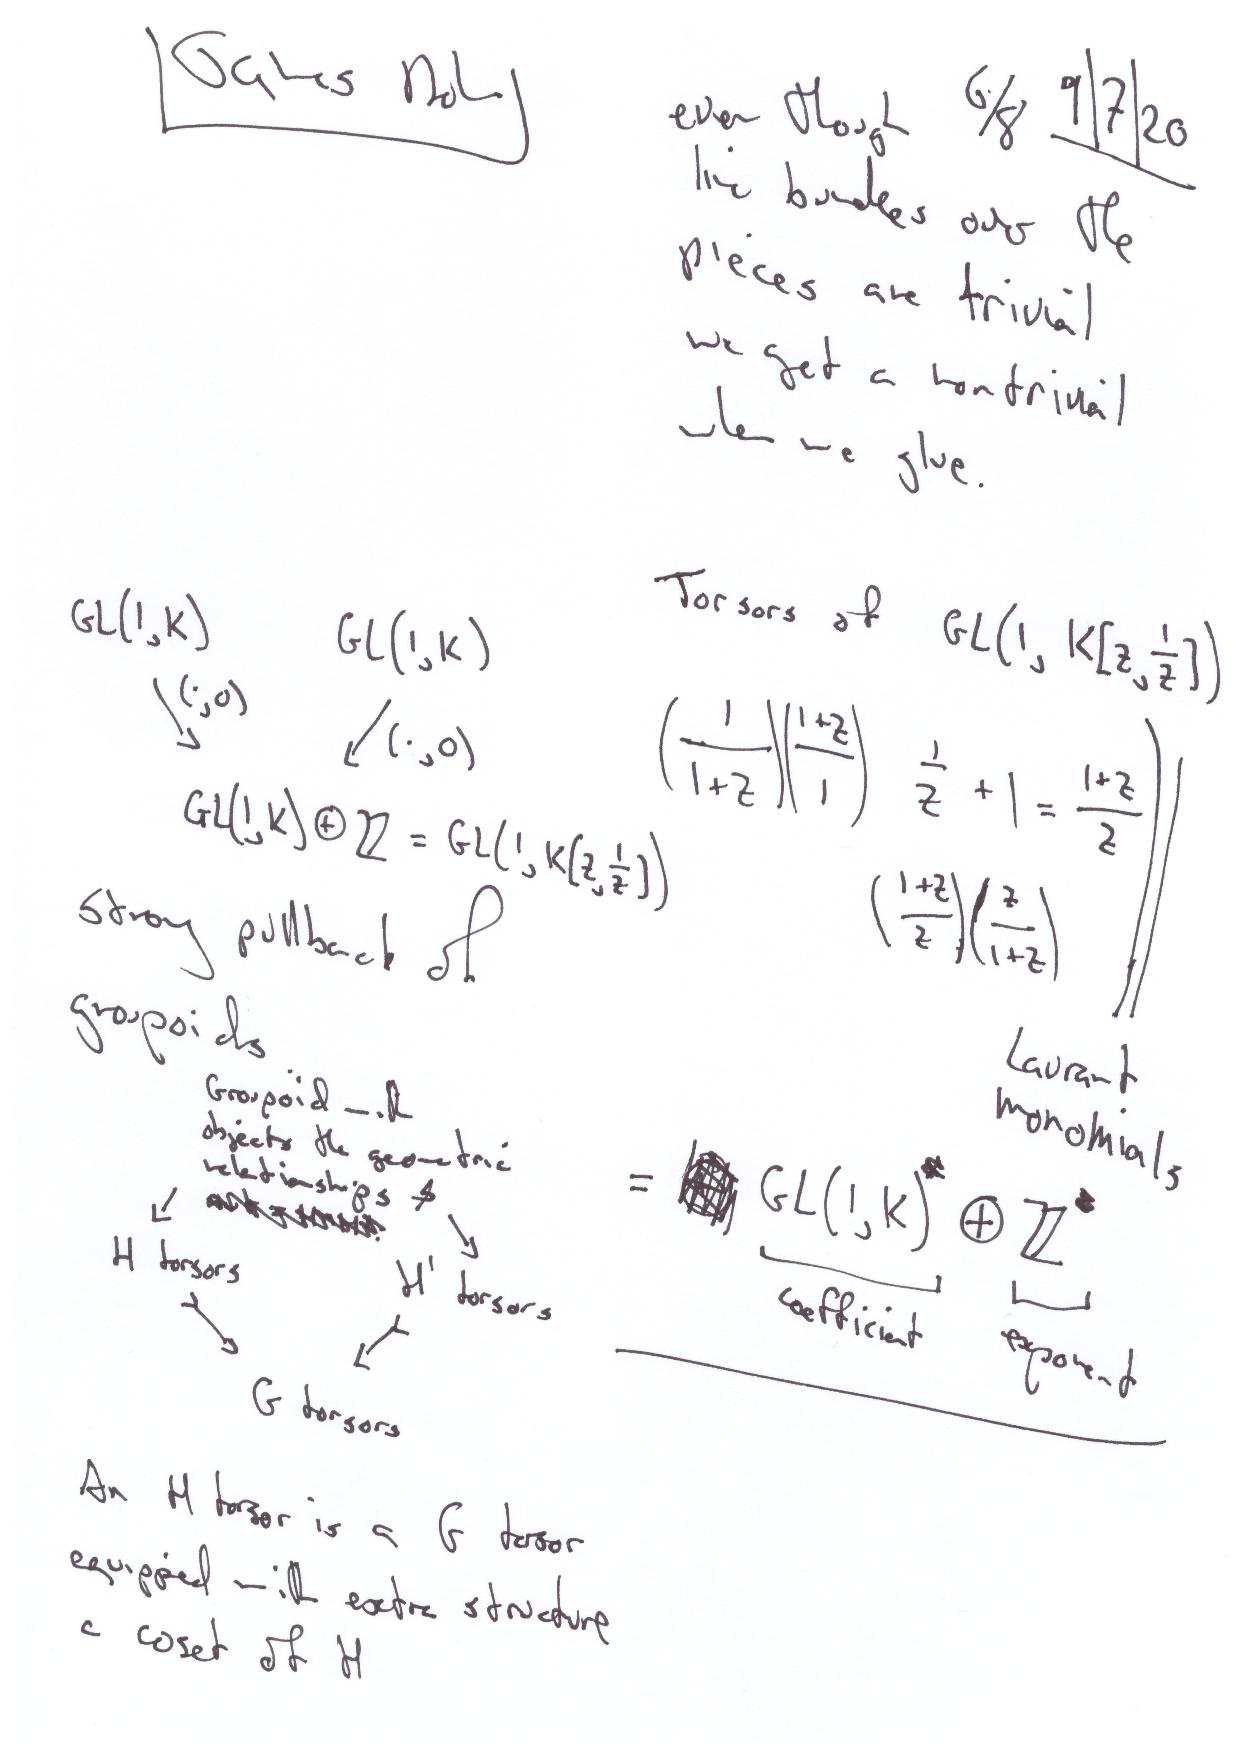 6/8 9/7/20
even though
line bundles over the
pieces are trivial
we get a nontrivial
when we glue.
GL(1,K) GL(1,K)
(·,0) (·,0)
GL(1,K) ⊕ ℤ = GL(1, K[z, 1/z])
strong pullback of
groupoids
Groupoid with
objects the geometric
relationships
H torsors H' torsors
G torsors
An H torsor is a G torsor
equipped with extra structure
a coset of H
Torsors of GL(1, K[z, 1/z])
(1/(1+z))((1+z)/1) 1/z + 1 = (1+z)/z
((1+z)/z)(z/(1+z))
Laurant
monomials
= GL(1,K) ⊕ ℤ
coefficient exponent